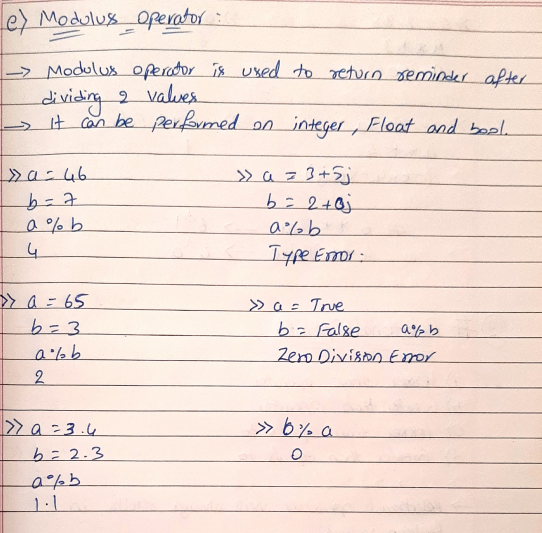 e) Modulus Operator :
→ Modulus operator is used to return reminder after
dividing 2 values
→ It can be performed on integer, Float and bool.
>> a = 46
b = 7
a % b
4
>> a = 3+5j
b = 2+0j
a%b
Type Error :
>> a = 65
b = 3
a%b
2
>> a = True
b = False a%b
Zero Division Error
>> a = 3.4
b = 2.3
a%b
1.1
>> b % a
0